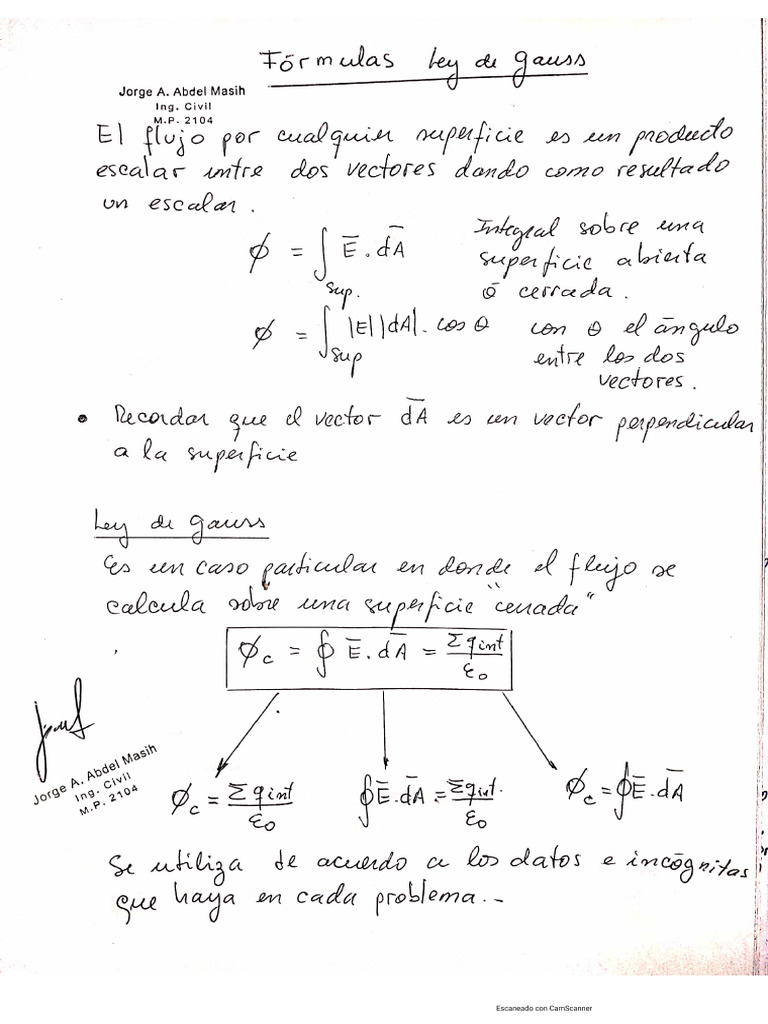 Fórmulas Ley de Gauss
Jorge A. Abdel Masih
Ing. Civil
M.P. 2104
El flujo por cualquier superficie es un producto
escalar entre dos vectores dando como resultado
un escalar.
ϕ = ∫Sup. E̅ . dA̅
Integral sobre una
superficie abierta
ó cerrada.
ϕ = ∫Sup |E||dA|. cos θ
con θ el ángulo
entre los dos
vectores.
• Recordar que el vector dA̅ es un vector perpendicular
a la superficie
Ley de Gauss
Es un caso particular en donde el flujo se
calcula sobre una superficie "cerrada"
ϕc = ∮ E̅ . dA̅ = Σqint/εo
Jorge A. Abdel Masih
Ing. Civil
M.P. 2104
ϕc = Σqint/εo ∮E̅.dA̅ = Σqint./εo ϕc = ∮E̅.dA̅
Se utiliza de acuerdo a los datos e incógnitas
que haya en cada problema.-
Escaneado con CamScanner